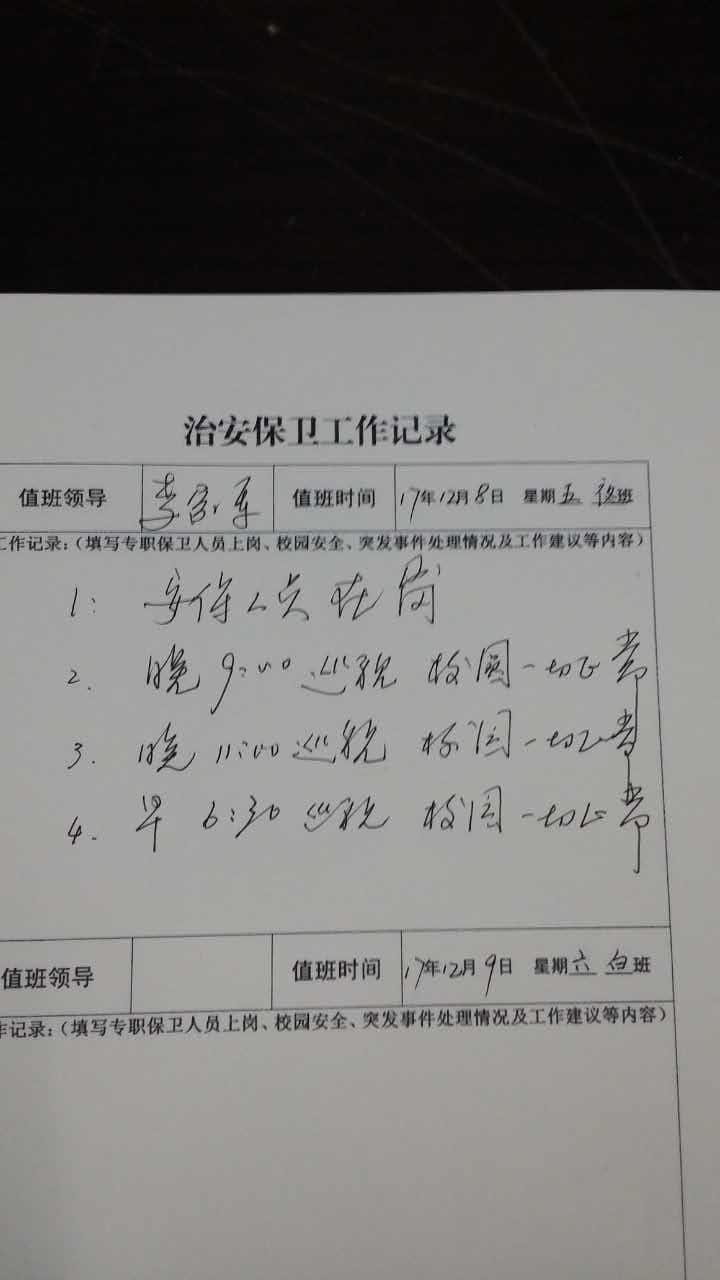 治安保卫工作记录
值班领导 李 军 值班时间 17年12月8日 星期五 夜班
工作记录:(填写专职保卫人员上岗、校园安全、突发事件处理情况及工作建议等内容)
1: 安保人员在岗
2. 晚9:00巡视 校园一切正常
3. 晚11:00巡视 校园一切正常
4. 早6:30巡视 校园一切正常
值班领导 值班时间 17年12月9日 星期六 白班
作记录:(填写专职保卫人员上岗、校园安全、突发事件处理情况及工作建议等内容)